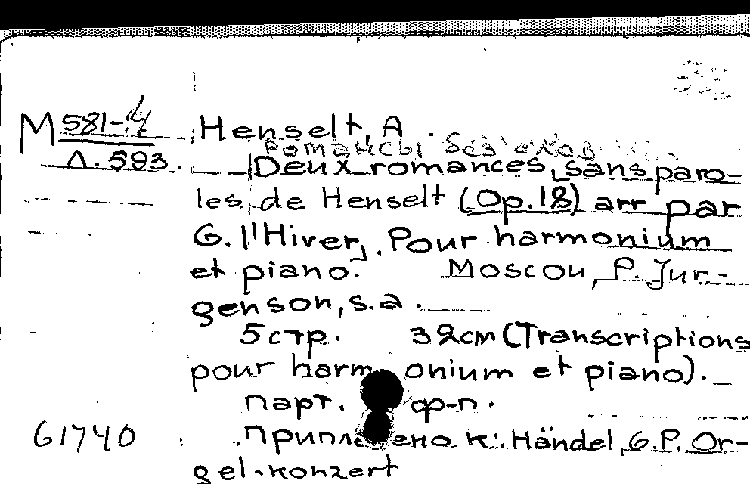 M 581-4
Л. 593.
Henselt, A.
Романсы без слов
Deux romances sans paro-
les de Henselt (Op.18) arr par
G. l'Hiver, Pour harmonium
et piano. Moscou, P. Jur-
genson, s.a.
5 стр. 32cm (Transcriptions
pour harmonium et piano).
парт. ф-п.
61740
приплетено к: Händel, G.P. Or-
gel-konzert